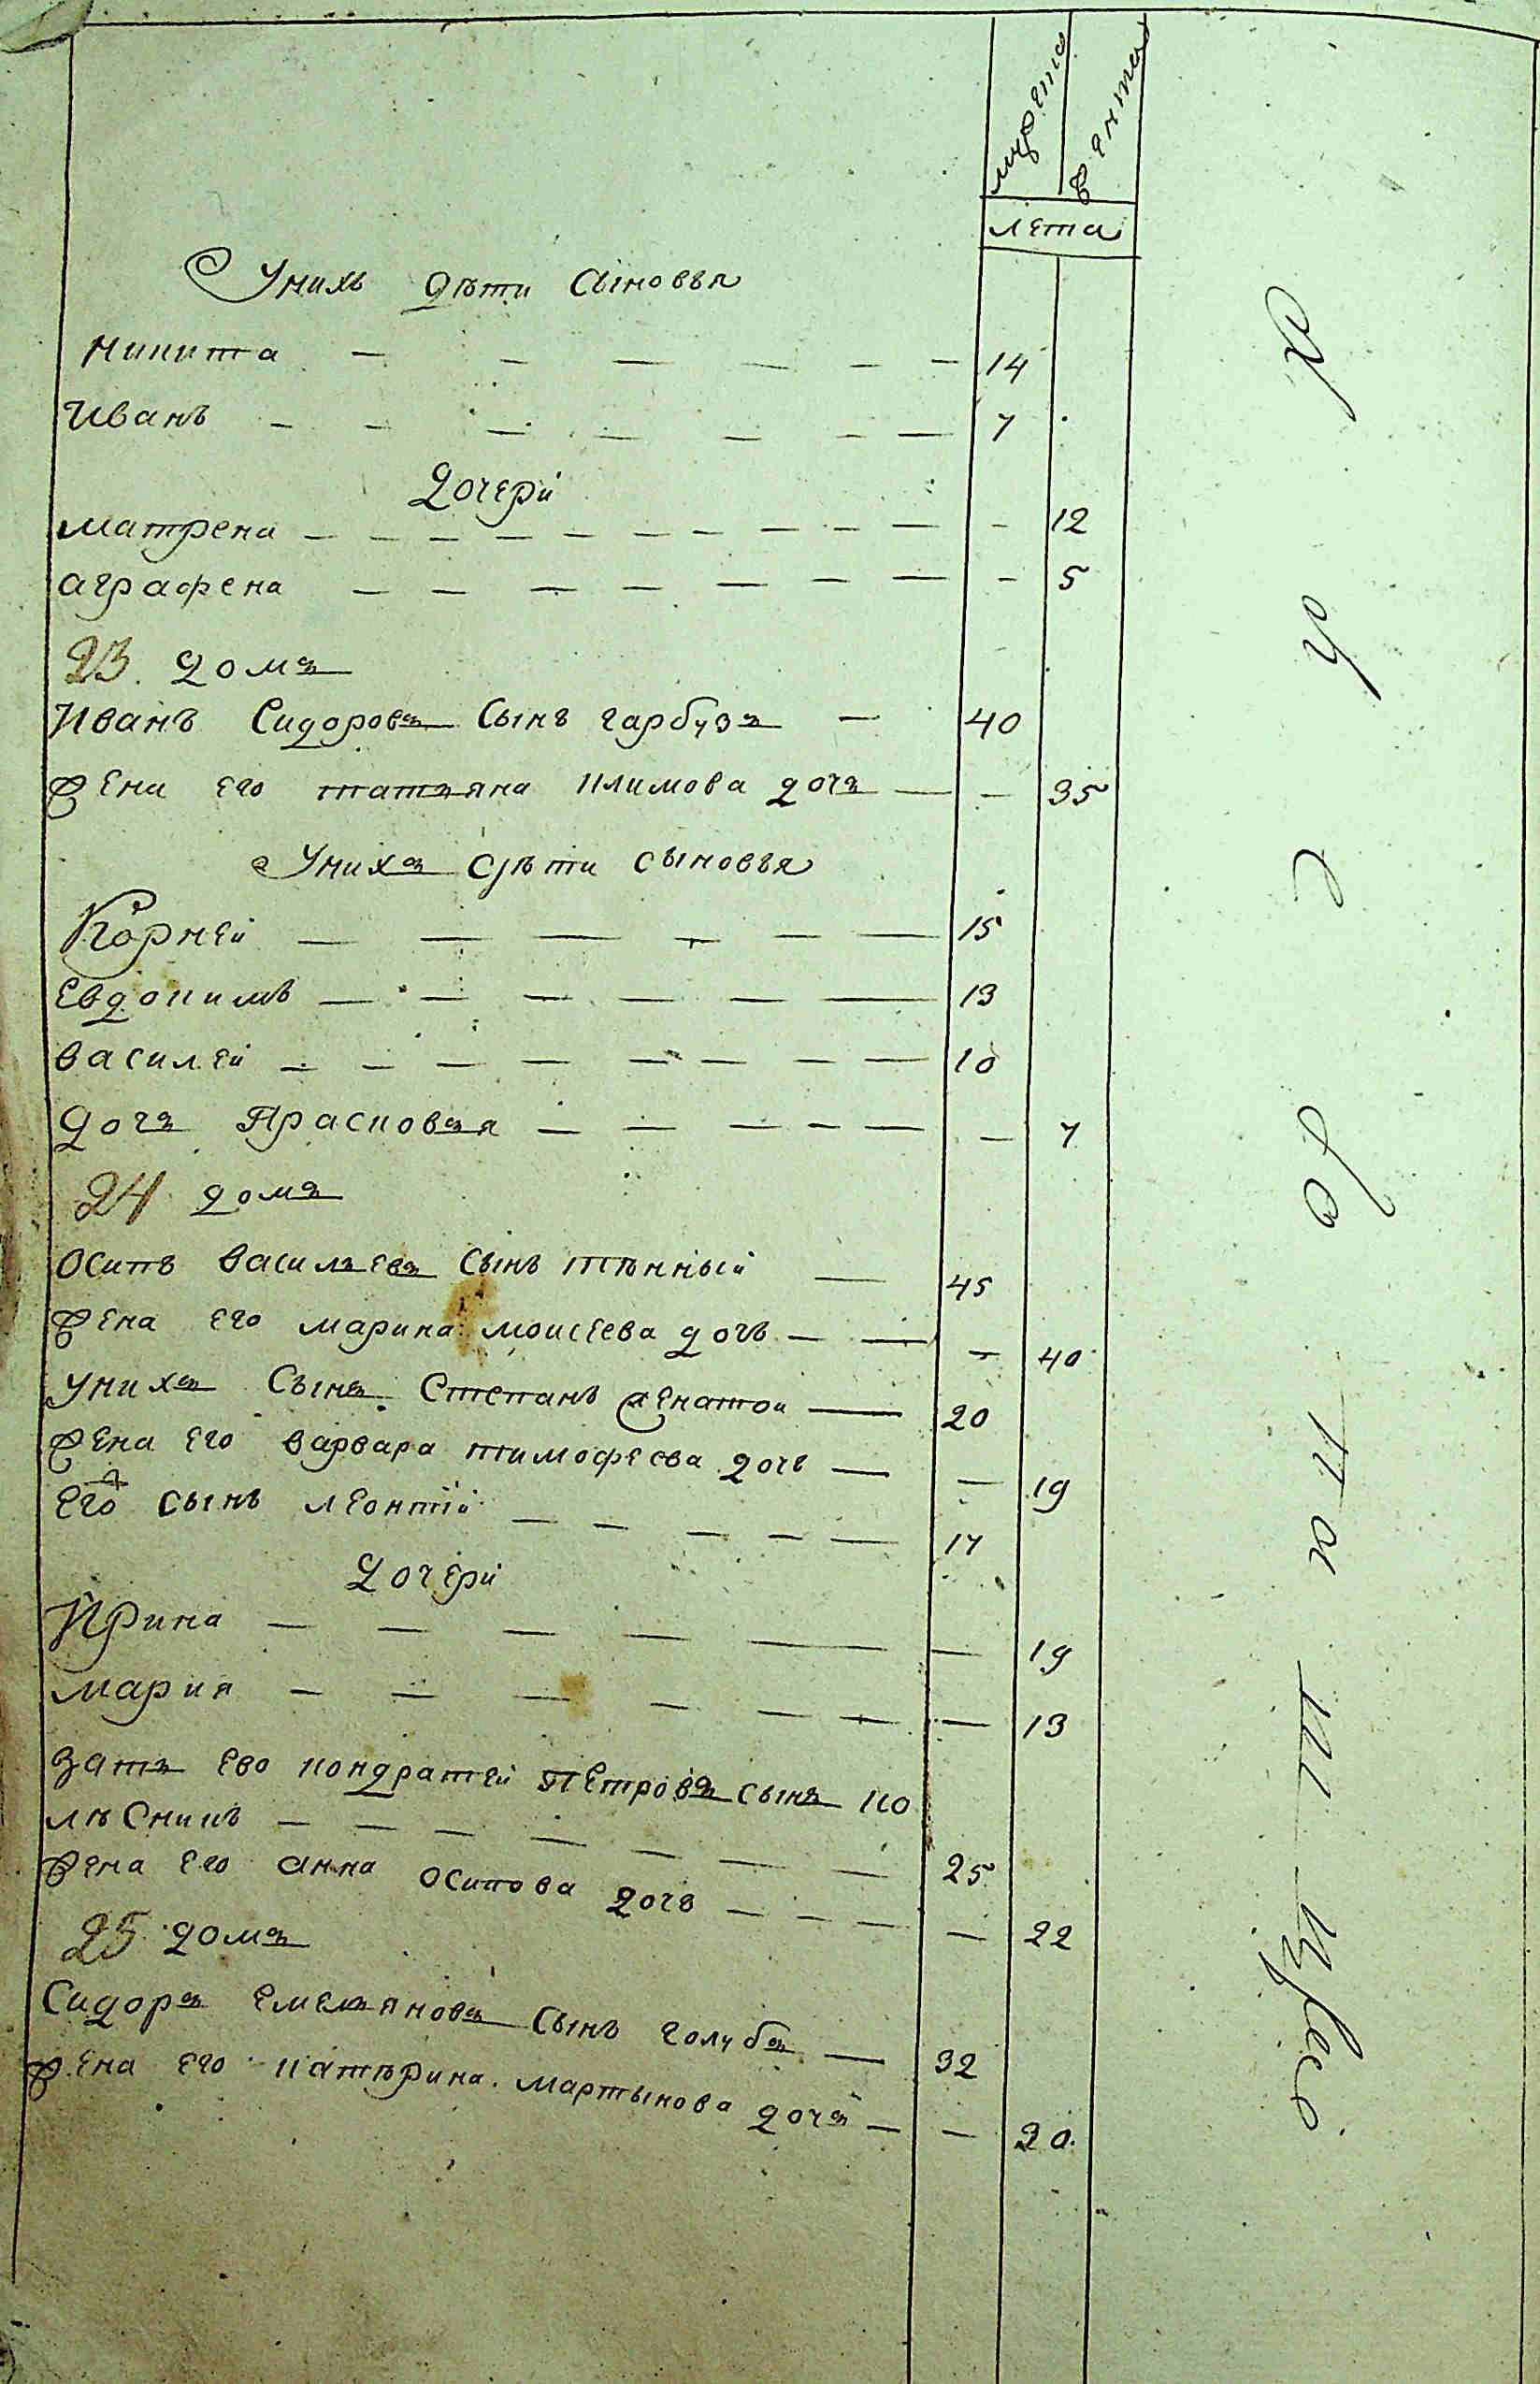 мужеска
женска
лета
У нихъ дѣти сыновья
никита — — — — — — 14
Иванъ — — — — — — — 7
Дочери
матрена — — — — — — — — — — 12
аграфена — — — — — — — — 5
23. домъ
Иванъ Сидоровъ сынъ гарбузъ — 40
жена его татьяна климова дочь — — 35
У нихъ дѣти сыновья
Корней — — — — — — 15
Евдокимъ — — — — — — 13
василей — — — — — — — — 10
дочь Прасковья — — — — — — 7
24 домъ
Осипъ васильевъ сынъ тѣнный — 45
жена его марина моисеева дочь — — — 40
у нихъ сынъ Степанъ женатои — 20
жена его варвара тимофеева дочь — — 19
Его сынъ леонтій — — — — — 17
Дочери
Ирина — — — — — — 19
мария — — — — — — — 13
зять ево кондратей Петровъ сынъ ко
лѣсникъ — — — — — — — 25
жена его анна осипова дочь — — — — 22
25 домъ
Сидоръ емельяновъ сынъ голубъ — 32
жена его катѣрина мартынова дочь — — 20